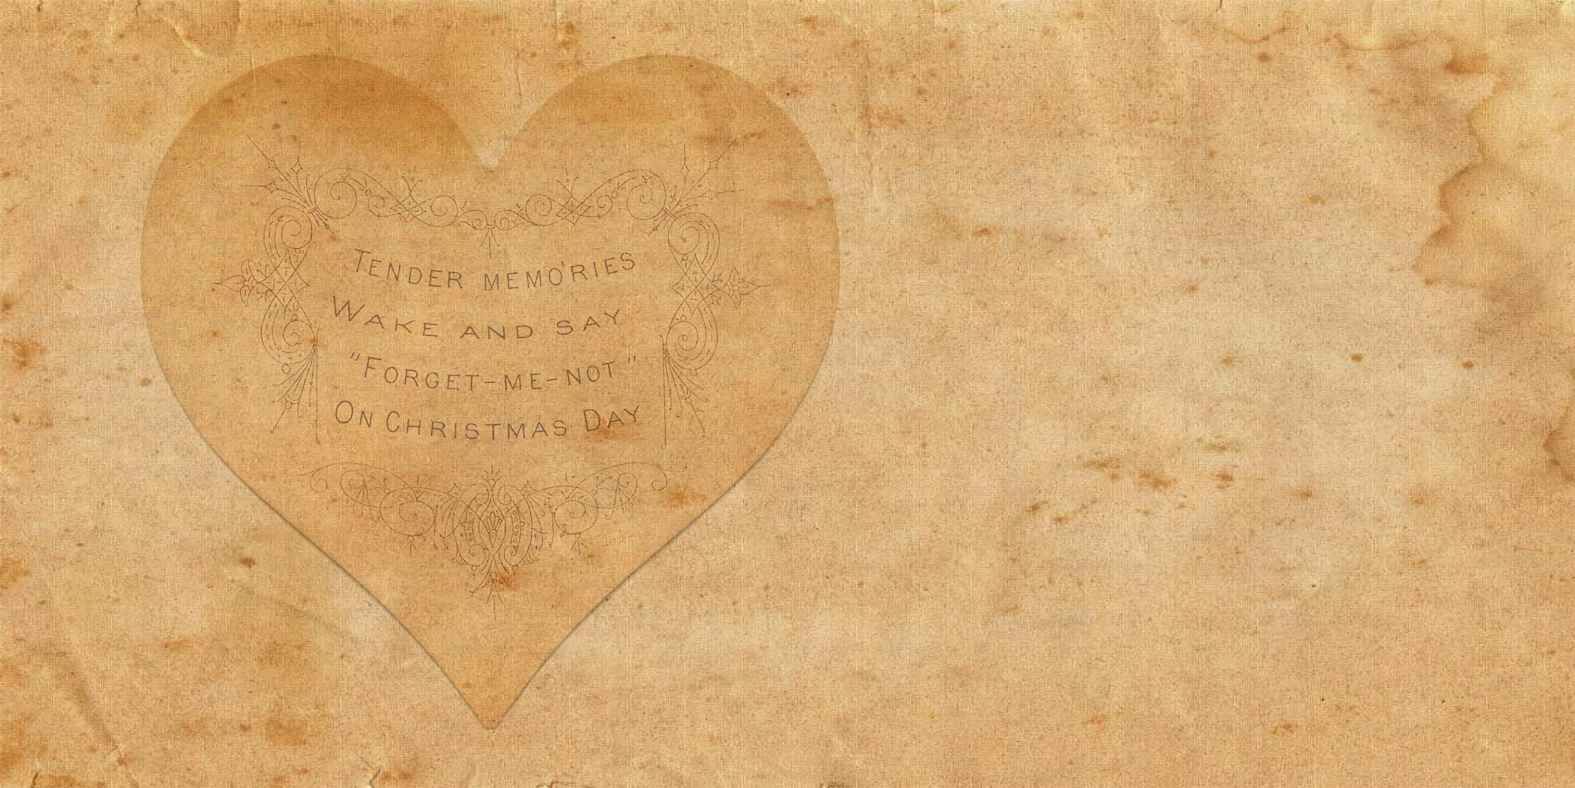 TENDER MEMO'RIES
WAKE AND SAY
"FORGET-ME-NOT"
ON CHRISTMAS DAY